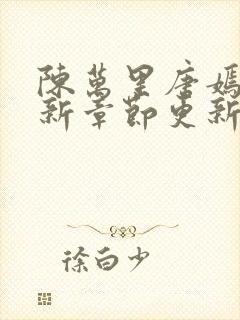 陳萬里唐嫣
新章節更新
徐白少